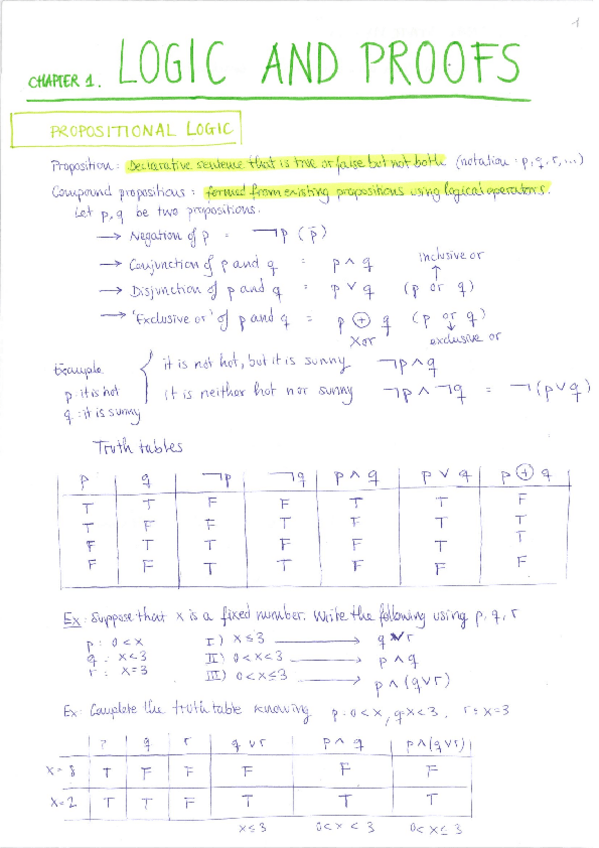 1
CHAPTER 1. LOGIC AND PROOFS
PROPOSITIONAL LOGIC
Proposition: Declarative sentence that is true or false but not both (notation: p, q, r, ...)
Compound propositions: formed from existing propositions using logical operators.
Let p, q be two propositions.
→ Negation of p = ¬p (p̄)
→ Conjunction of p and q : p ∧ q
inclusive or
↑
→ Disjunction of p and q : p ∨ q (p or q)
→ 'Exclusive or' of p and q = p ⊕ q (p or q)
↓
Xor exclusive or
Example
p: it is hot
q: it is sunny
it is not hot, but it is sunny ¬p ∧ q
it is neither hot nor sunny ¬p ∧ ¬q = ¬(p ∨ q)
Truth tables
p q ¬p ¬q p ∧ q p ∨ q p ⊕ q
T T F F T T F
T F F T F T T
F T T F F T T
F F T T F F F
Ex: Suppose that x is a fixed number. Write the following using p, q, r
p: 0 < x I) x ≤ 3 → q ∨ r
q: x < 3 II) 0 < x < 3 → p ∧ q
r: x = 3 III) 0 < x ≤ 3 → p ∧ (q ∨ r)
Ex: Complete the truth table knowing p: 0 < x, q: x < 3, r: x = 3
q r q ∨ r p ∧ q p ∧ (q ∨ r)
x = 8 T F F F F F
x = 2 T T F T T T
x ≤ 3 0 < x < 3 0 < x ≤ 3